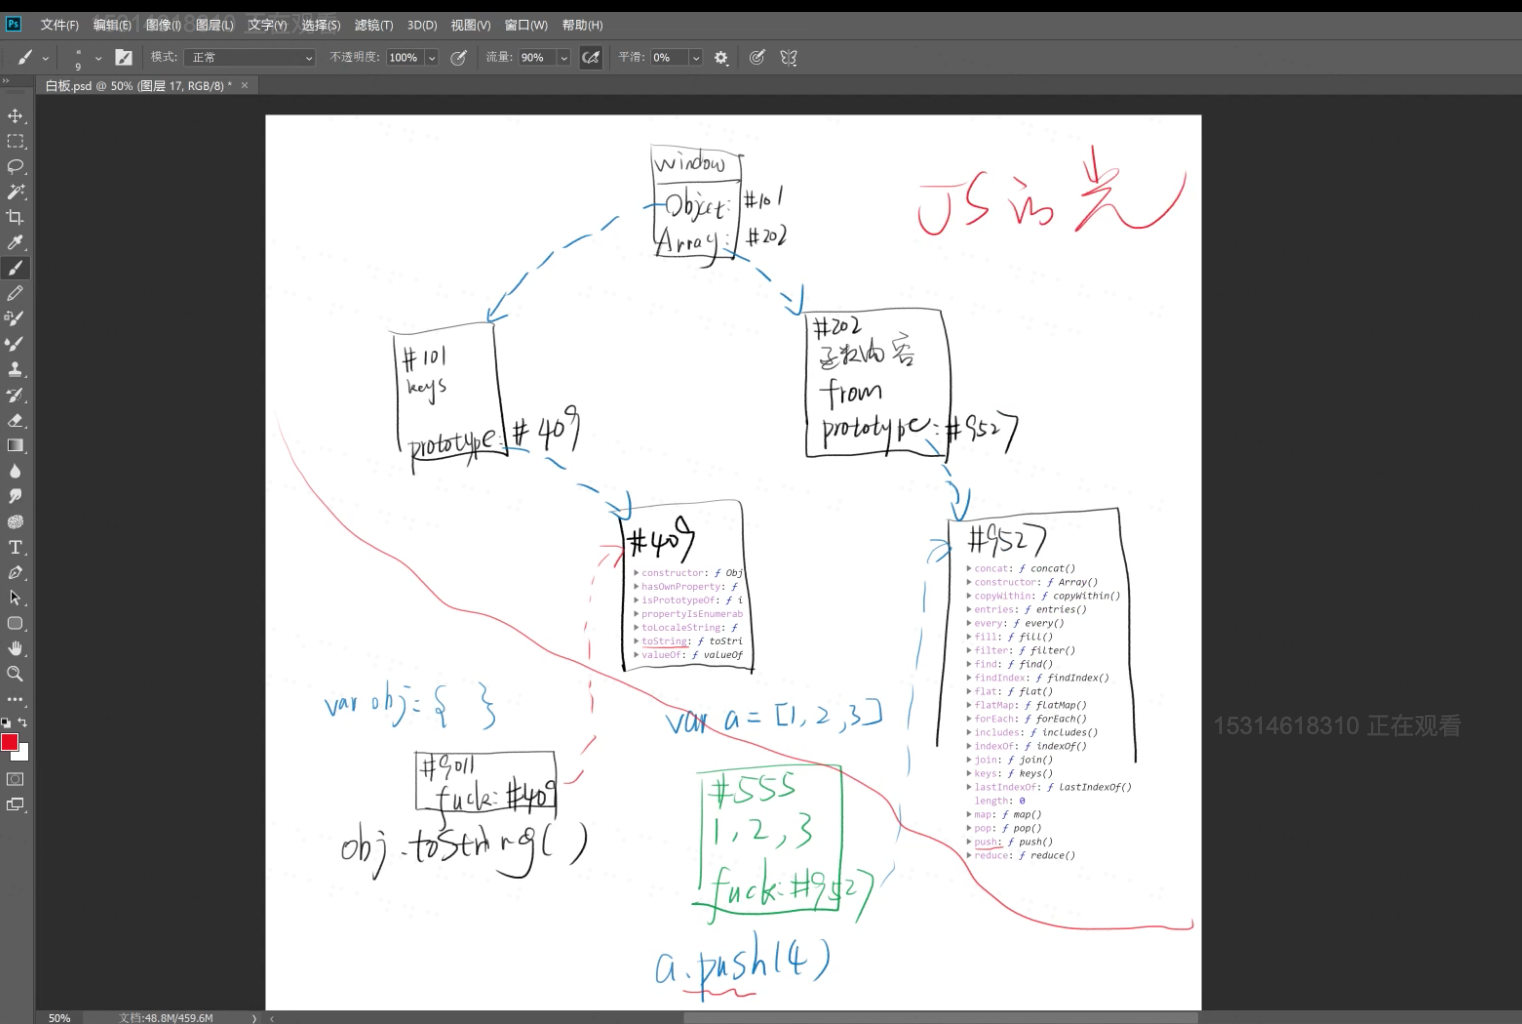 Ps 文件(F) 编辑(E) 图像(I) 图层(L) 文字(Y) 选择(S) 滤镜(T) 3D(D) 视图(V) 窗口(W) 帮助(H)
15314618310 正在观看
9 模式: 正常 不透明度: 100% 流量: 90% 平滑: 0%
白板.psd @ 50% (图层 17, RGB/8) * ×
window
Object: #101
Array: #202
JS的光
#101
keys
prototype: #409
#202
函数内容
from
prototype: #9527
#409
constructor: ƒ Obj
hasOwnProperty: ƒ
isPrototypeOf: ƒ i
propertyIsEnumerab
toLocaleString: ƒ
toString: ƒ toStri
valueOf: ƒ valueOf
#9527
concat: ƒ concat()
constructor: ƒ Array()
copyWithin: ƒ copyWithin()
entries: ƒ entries()
every: ƒ every()
fill: ƒ fill()
filter: ƒ filter()
find: ƒ find()
findIndex: ƒ findIndex()
flat: ƒ flat()
flatMap: ƒ flatMap()
forEach: ƒ forEach()
includes: ƒ includes()
indexOf: ƒ indexOf()
join: ƒ join()
keys: ƒ keys()
lastIndexOf: ƒ lastIndexOf()
length: 0
map: ƒ map()
pop: ƒ pop()
push: ƒ push()
reduce: ƒ reduce()
var obj = { }
#9011
fuck: #409
obj.toString()
var a = [1, 2, 3]
#555
1, 2, 3
fuck: #9527
a.push(4)
15314618310 正在观看
50% 文档:48.8M/459.6M